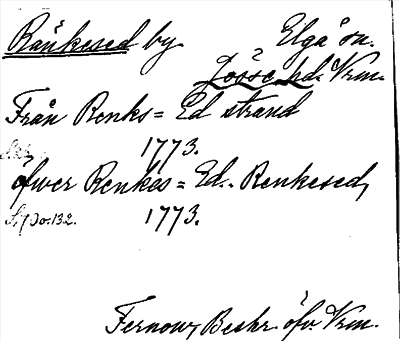 Ränkesed by. Elgå sn.
Jösse hd. Vrm.
Från Renks= Ed strand
1773.
öfwer Renkes= Ed.. Renkesed,
S. 130.132. 1773.
Fernow, Beskr. öfv. Vrm.